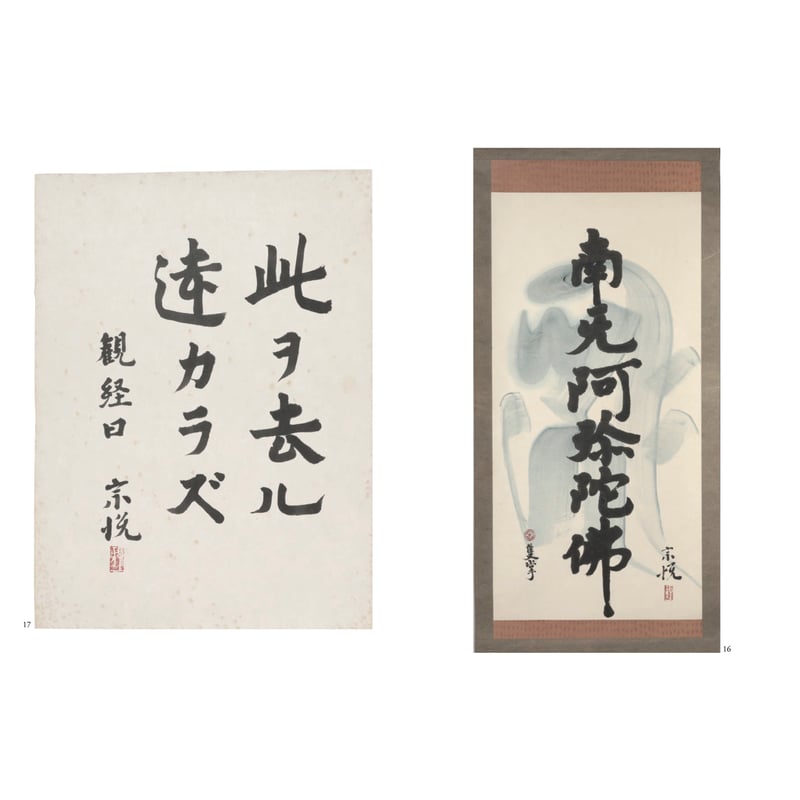 南无阿弥陀佛
宗悦
16
此ヲ去ル
遠カラズ
観経曰
宗悦
17